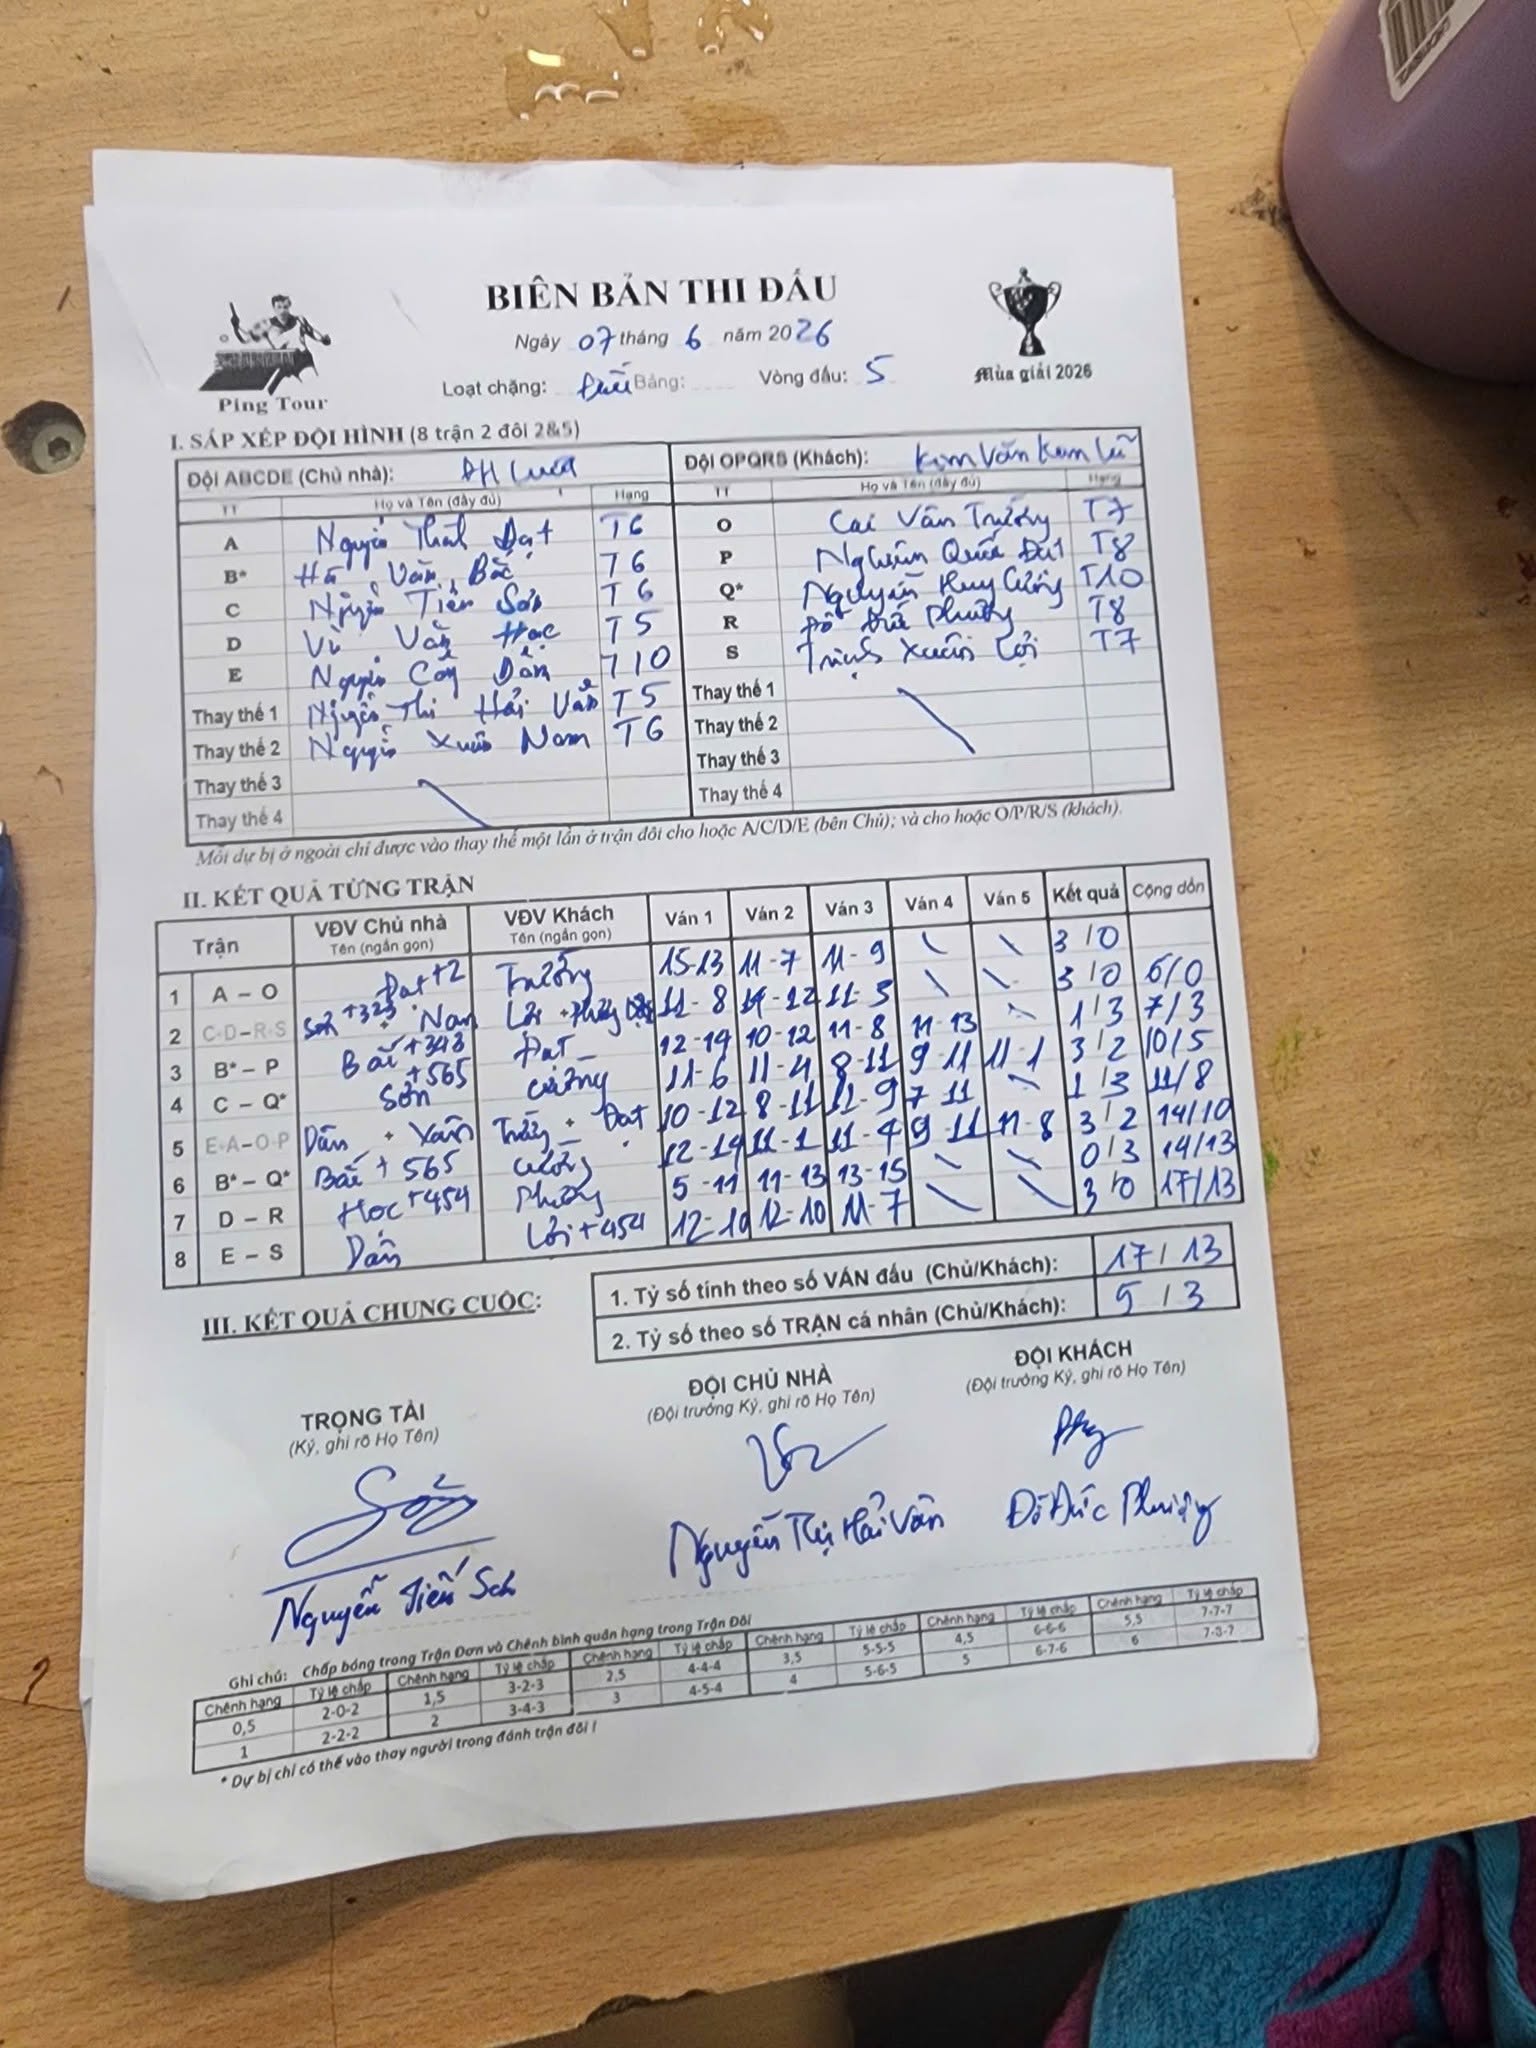 BIÊN BẢN THI ĐẤU
Ngày 07 tháng 6 năm 2026
Ping Tour
Mùa giải 2026
Loạt chặng: Bảng: Vòng đấu: 5
I. SẮP XẾP ĐỘI HÌNH (8 trận 2 đôi 2&5)
Đội ABCDE (Chủ nhà): Đội OPQRS (Khách): Kim Văn Kim Lũ
TT Họ và Tên (đầy đủ) Hạng TT Họ và Tên (đầy đủ) Hạng
A Nguyễn Thành Đạt T6 O Cai Văn Trường T7
B* Hà Văn Bắc T6 P Quốc Đạt T8
C Nguyễn Tiến Sơn T6 Q* Nguyễn Huy Cường T10
D Vũ Văn Học T5 R Đỗ Đức Phường T8
E Nguyễn Công Dần T10 S Trịnh Xuân Lợi T7
Thay thế 1 Nguyễn Thị Hải Vân T5 Thay thế 1
Thay thế 2 Nguyễn Xuân Nam T6 Thay thế 2
Thay thế 3 Thay thế 3
Thay thế 4 Thay thế 4
Mỗi dự bị ở ngoài chỉ được vào thay thế một lần ở trận đôi cho hoặc A/C/D/E (bên Chủ); và cho hoặc O/P/R/S (khách).
II. KẾT QUẢ TỪNG TRẬN
Trận VĐV Chủ nhà VĐV Khách Ván 1 Ván 2 Ván 3 Ván 4 Ván 5 Kết quả Cộng dồn
Tên (ngắn gọn) Tên (ngắn gọn)
1 A – O Đạt +2 Trường 15-13 11-7 11-9 \ \ 3/0
2 C-D–R-S Sơn +323 + Nam Lợi + Phường 11-8 14-12 11-5 \ \ 3/0 6/0
3 B* – P Bắc +343 Đạt 12-14 10-12 11-8 11-13 \ 1/3 7/3
4 C – Q* Sơn +565 Cường 11-6 11-4 8-11 9-11 11-1 3/2 10/5
5 E-A–O-P Dần + Vân Trường + Đạt 10-12 8-11 11-9 7-11 \ 1/3 11/8
6 B* – Q* Bắc + 565 Cường 12-14 11-1 11-4 9-11 11-8 3/2 14/10
7 D – R Học +454 Phường 5-11 11-13 13-15 \ \ 0/3 14/13
8 E – S Dần Lợi +454 12-10 12-10 11-7 \ \ 3/0 17/13
III. KẾT QUẢ CHUNG CUỘC:
1. Tỷ số tính theo số VÁN đấu (Chủ/Khách): 17/13
2. Tỷ số theo số TRẬN cá nhân (Chủ/Khách): 5/3
TRỌNG TÀI ĐỘI CHỦ NHÀ ĐỘI KHÁCH
(Ký, ghi rõ Họ Tên) (Đội trưởng Ký, ghi rõ Họ Tên) (Đội trưởng Ký, ghi rõ Họ Tên)
Nguyễn Tiến Sơn Nguyễn Thị Hải Vân Đỗ Đức Phường
Ghi chú: Chấp bóng trong Trận Đơn và Chênh bình quân hạng trong Trận Đôi
Chênh hạng Tỷ lệ chấp Chênh hạng Tỷ lệ chấp Chênh hạng Tỷ lệ chấp Chênh hạng Tỷ lệ chấp Chênh hạng Tỷ lệ chấp Chênh hạng Tỷ lệ chấp
0,5 2-0-2 1,5 3-2-3 2,5 4-4-4 3,5 5-5-5 4,5 6-6-6 5,5 7-7-7
1 2-2-2 2 3-4-3 3 4-5-4 4 5-6-5 5 6-7-6 6 7-8-7
* Dự bị chỉ có thể vào thay người trong đánh trận đôi !